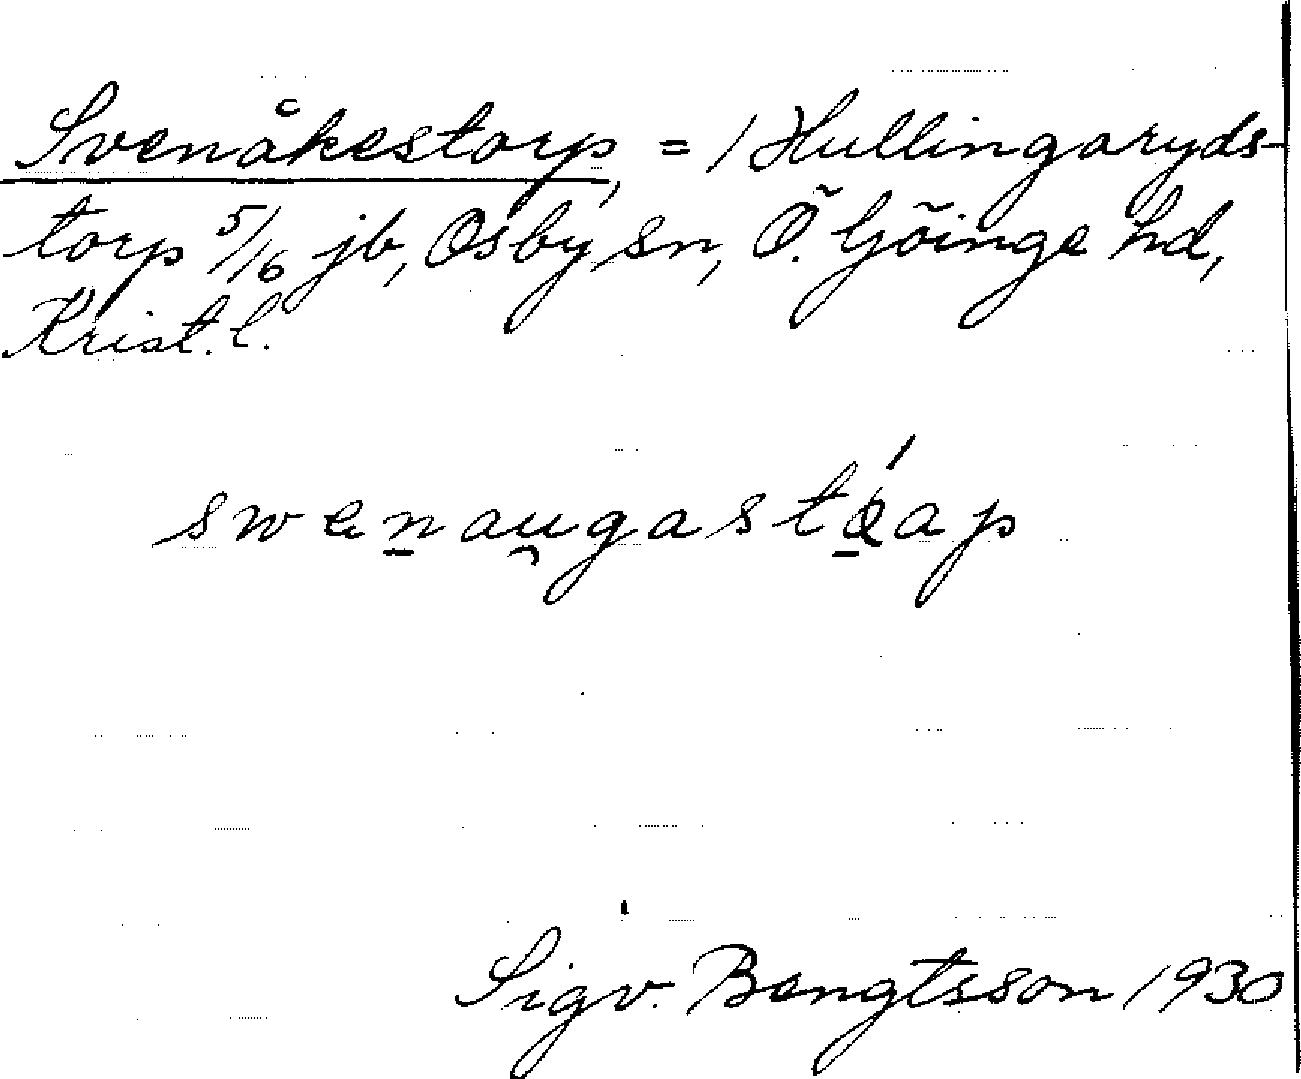 Svenåkestorp, = / Hullingaryds-
torp 5/6 jb, Osby sn, Ö. Göinge hd,
Krist. l.
Sigv. Bengtsson 1930